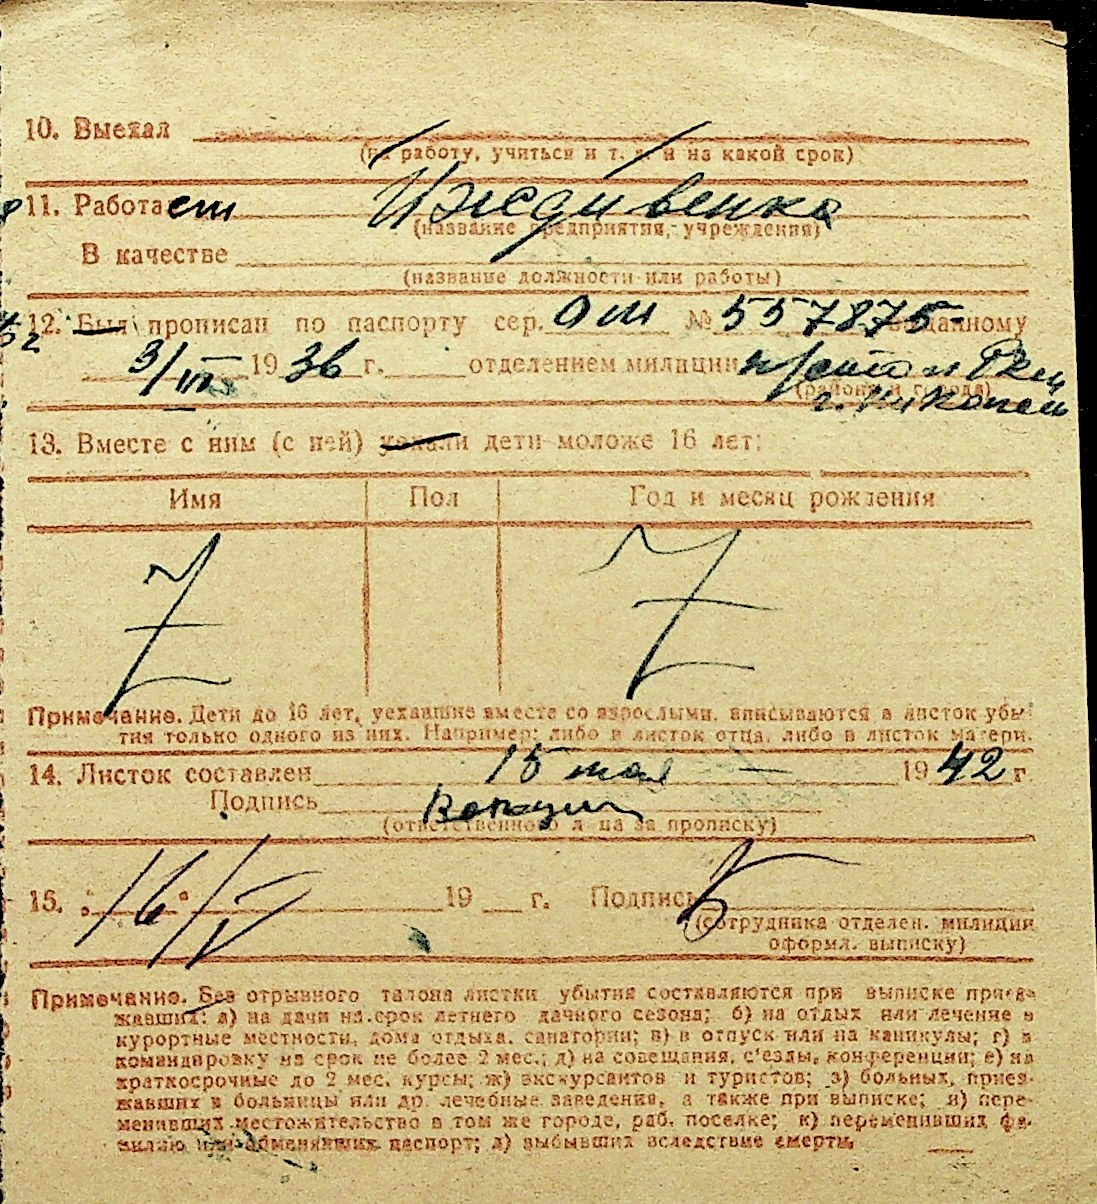 10. Выехал
(на работу, учиться и т. д. и на какой срок)
11. Работает Иждивенка
(название предприятия, учреждения)
В качестве
(название должности или работы)
12. Был прописан по паспорту сер. ОШ № 557875 выданному
3/VI 1936 г. отделением милиции
(района и города)
г. Никополь
13. Вместе с ним (с ней) уехали дети моложе 16 лет:
Имя Пол Год и месяц рождения
Z Z
Примечание. Дети до 16 лет, уехавшие вместе со взрослыми, вписываются в листок убы-
тия только одного из них. Например: либо в листок отца, либо в листок матери.
14. Листок составлен 15 мая 1942 г.
Подпись
(ответственного лица за прописку)
15. „16“/V 19 г. Подпись
(сотрудника отделен. милиции
оформл. выписку)
Примечание. Без отрывного талона листки убытия составляются при выписке приез-
жавших: а) на дачи на срок летнего дачного сезона; б) на отдых или лечение в
курортные местности, дома отдыха, санатории; в) в отпуск или на каникулы; г) в
командировку на срок не более 2 мес.; д) на совещания, с'езды, конференции; е) на
краткосрочные до 2 мес. курсы; ж) экскурсантов и туристов; з) больных, приез-
жавших в больницы или др. лечебные заведения, а также при выписке; и) пере-
менивших местожительство в том же городе, раб. поселке; к) переменивших фа-
милию или обменявших паспорт; л) выбывших вследствие смерти.